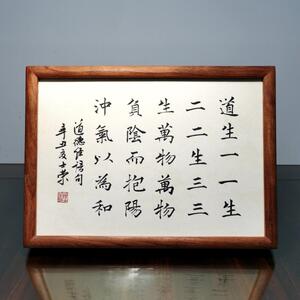 道生一一生
二二生三三
生萬物萬物
負陰而抱陽
沖氣以為和
道德經語句
辛丑友士榮